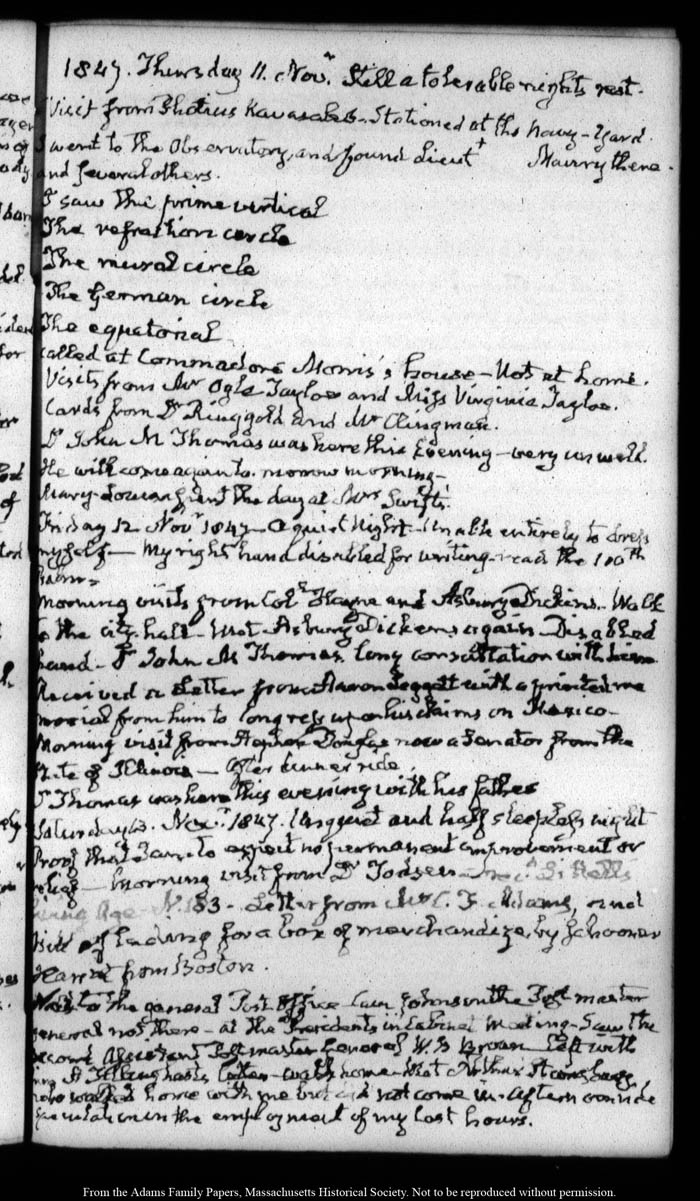 1847. Thursday 11. Novr. Still a tolerable nights rest.
Visit from Photius Kavasales - Stationed at the Navy-Yard.
I went to the Observatory, and found Lieutt Maury there.
and several others.
I saw the prime vertical
The refraction circle
The mural circle
The German circle
The equatorial
called at Commodore Morris's house - Not at home.
Visits from Mr Ogle Tayloe and Miss Virginia Tayloe.
Cards from Dr Ringgold and Mr Clingman.
Dr John M Thomas was here this Evening - very unwell.
He will come again to-morrow morning -
Mary-Louisa spent the day at Mrs Swift's.
Friday 12 Novr 1847 - A quiet Night - Unable entirely to dress
myself - My right hand disabled for writing - read the 100th
Psalm -
Morning visits from Coll Hayne and Asbury Dickins - Walk
to the city-hall - Met Asbury Dickens again - Disabled
hand - Dr John M Thomas, long consultation with him
Received a Letter from Aaron Leggett with a printed me
morial from him to Congress upon his claims on Mexico -
Morning visit from Stephen Douglas now a Senator from the
State of Illinois - After dinner ride.
Dr Thomas was here this evening with his father
Saturday 13. Novr. 1847. Unquiet and half sleepless night
Proof that I am to expect no permanent improvement or
relief - Morning visit from Dr Todsen - Littells
Living Age - N. 183 - Letter from Mrs C. F. Adams, and
bill of lading for a box of merchandize, by Schooner
from Boston.
Walk to the general Post Office - Cave Johnson the Post master
general not there - at the Presidents in Cabinet Meeting - Saw the
second Assistant Postmaster General W. Brown Left with
him letter - walk home - met Arthur
who walked home with me but did not come in - Afternoon ride
Speculation on the employment of my last hours.
From the Adams Family Papers, Massachusetts Historical Society. Not to be reproduced without permission.